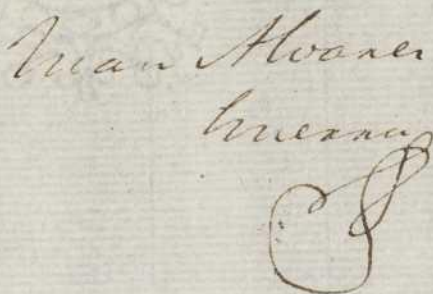 Juan Alvarez
Guerra